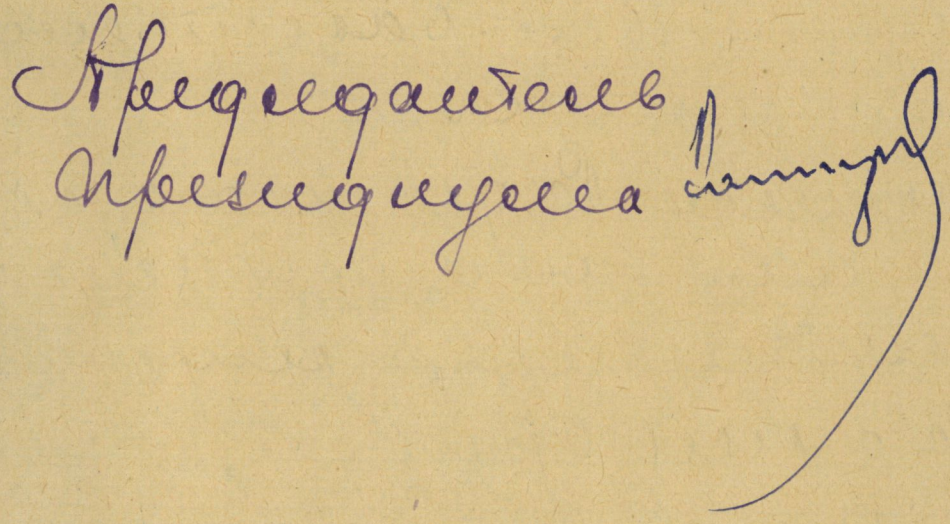 Председатель
президиума